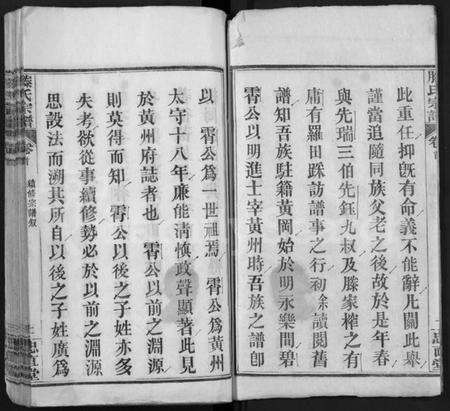 滕氏宗譜
此重任抑旣有命義不能辭凡關此舉
謹當追隨同族父老之後故於是年春
與先瑞三伯先鈺九叔及滕家榨之有
庸有羅田踩訪譜事之行初餘讀閱舊
譜知吾族駐籍黃岡始於明永樂間碧
霄公以明進士宰黃州時吾族之譜卽
以 霄公爲一世祖焉 霄公爲黃州
太守十八年廉能清愼政聲顯著此見
於黃州府誌者也 霄公以前之淵源
則莫得而知 霄公以後之子姓亦多
失考欲從事續修勢必於以前之淵源
思設法而溯其所自以後之子姓廣爲
滕氏宗譜
續修宗譜叙